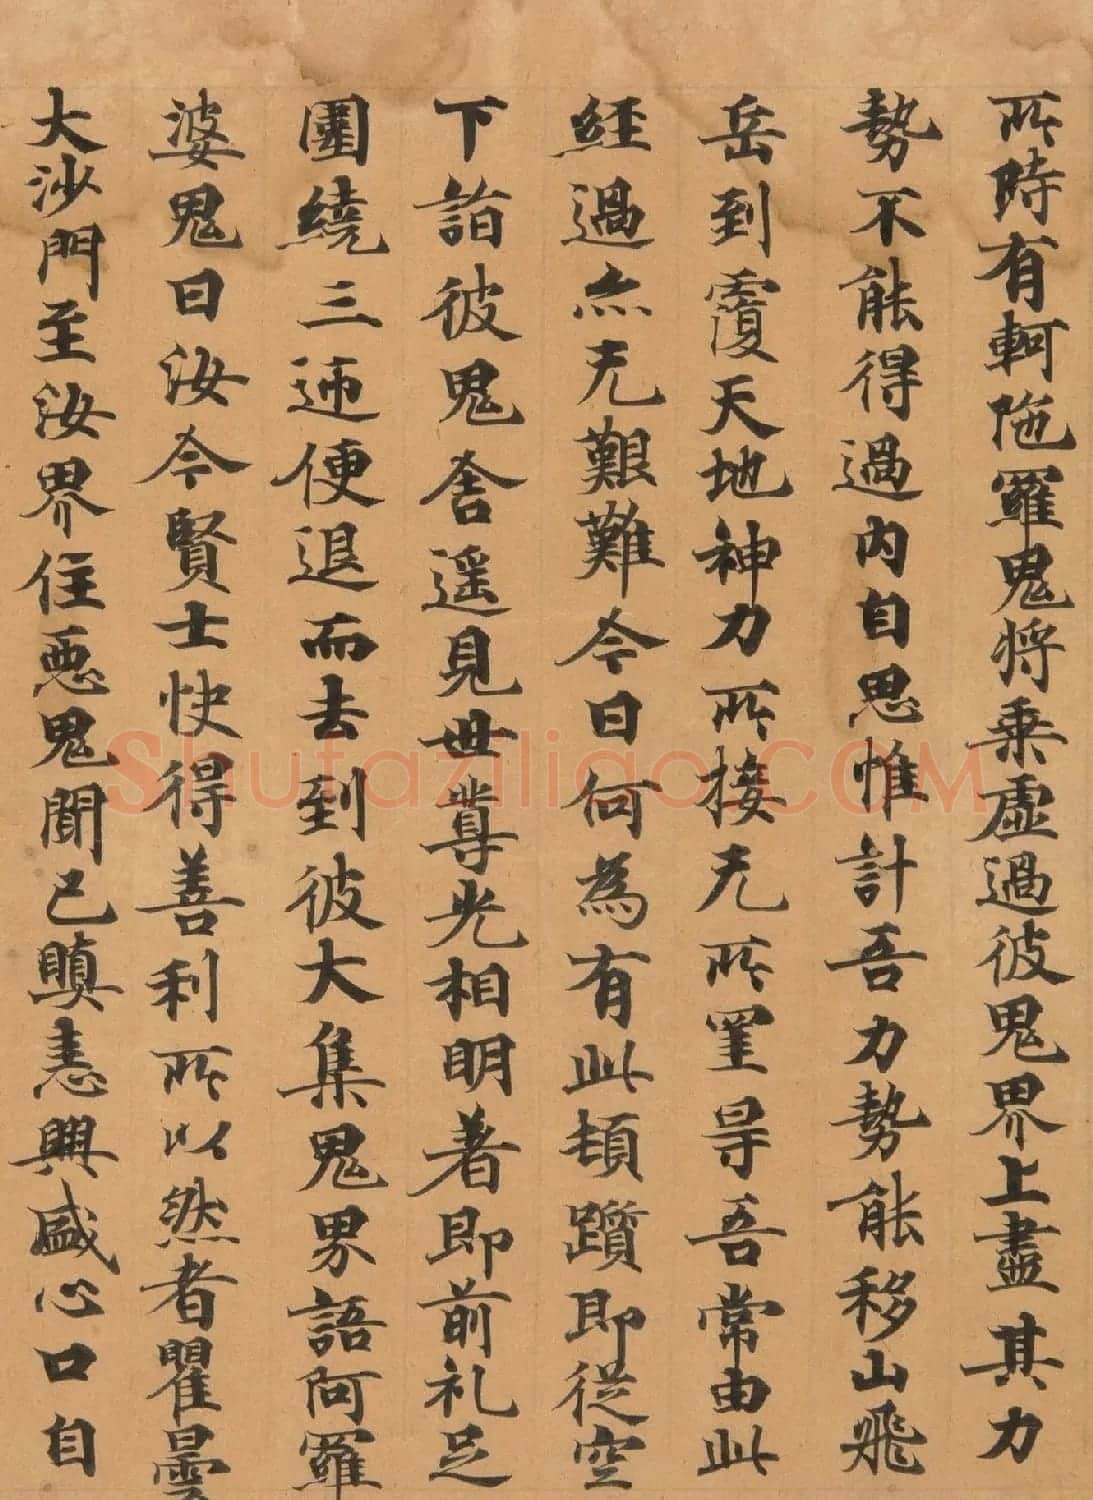 所時有軻陁羅鬼將乗虛過彼鬼界上盡其力
勢不能得過内自思惟計吾力勢能移山飛
岳到覆天地神力所接无所罣㝵吾常由此
經過亦无艱難今日何為有此頓躓即從空
下詣彼鬼舍遥見世尊光相明著即前礼足
圍繞三迊便退而去到彼大集鬼界語阿羅
婆鬼曰汝今賢士快得善利所以然者瞿曇
大沙門至汝界住惡鬼聞已瞋恚興盛心口自
Shufaziliao.COM